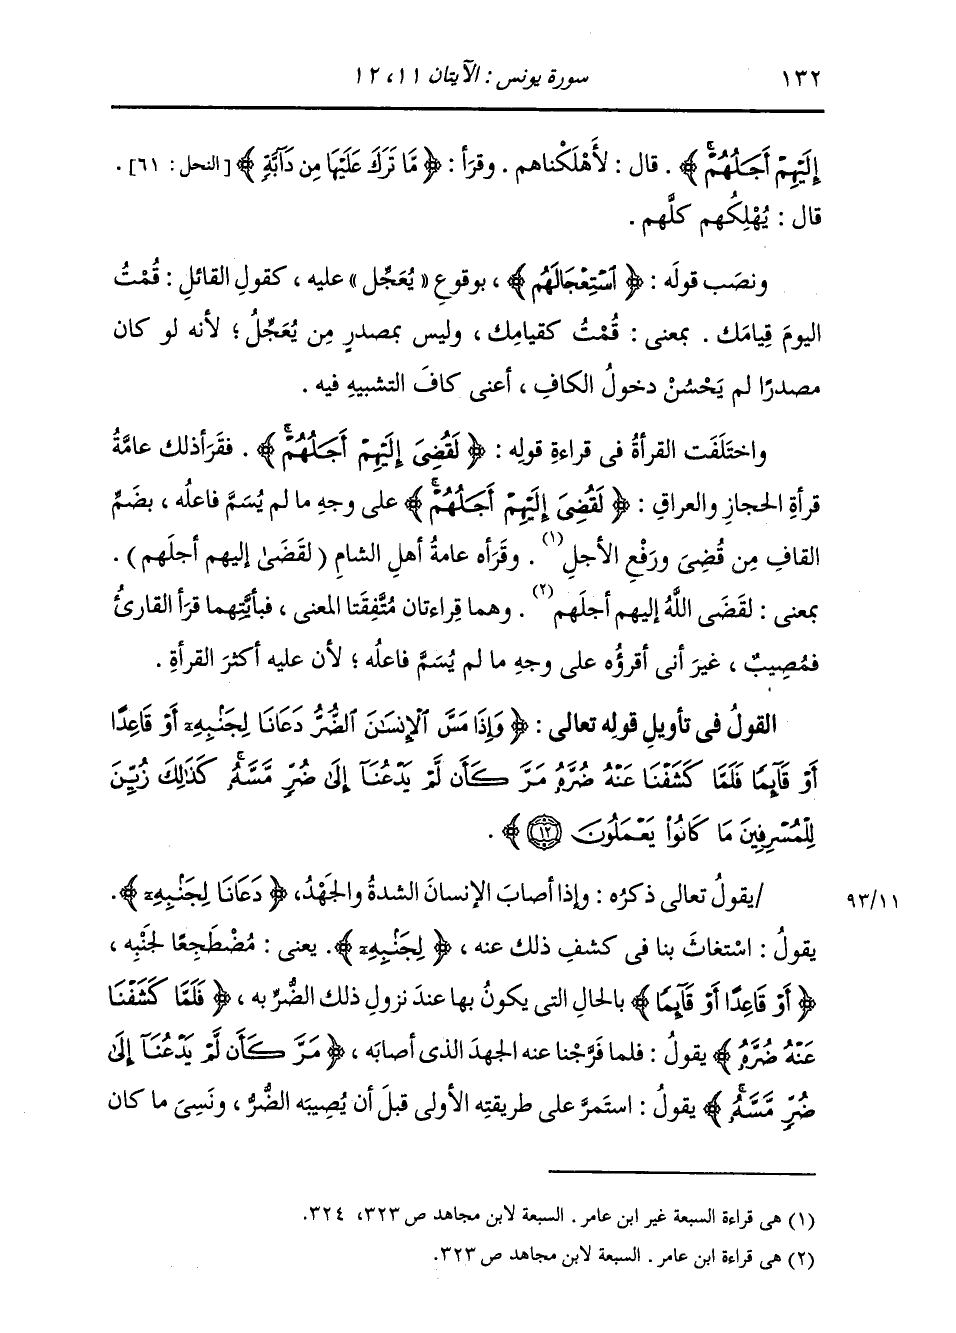 ١٣٢ سورة يونس : الآيتان ١١، ١٢
إِلَيْهِمْ أَجَلُهُمْۖ ﴾ . قال : لأَهْلَكْناهم . وقرَأ : ﴿ مَّا تَرَكَ عَلَيْهَا مِن دَآبَّةٍ ﴾ [النحل : ٦١] .
قال : يُهْلِكُهم كلَّهم .
ونصَب قولَه : ﴿ ٱسْتِعْجَالَهُم ﴾ ، بوقوعِ «يُعَجِّل» عليه ، كقولِ القائلِ : قُمْتُ
اليومَ قِيامَك . بمعنى : قُمْتُ كقيامِك ، وليس بمصدرٍ مِن يُعَجِّلُ ؛ لأنه لو كان
مصدرًا لم يَحْسُنْ دخولُ الكافِ ، أعنى كافَ التشبيهِ فيه .
واختَلَفَت القرأةُ فى قراءةِ قولِه : ﴿ لَقُضِىَ إِلَيْهِمْ أَجَلُهُمْۖ ﴾ . فقَرَأ ذلك عامَّةُ
قرأةِ الحجازِ والعراقِ : ﴿ لَقُضِىَ إِلَيْهِمْ أَجَلُهُمْۖ ﴾ على وجهِ ما لم يُسَمَّ فاعلُه ، بضَمِّ
القافِ مِن قُضِىَ ورَفْعِ الأجلِ(١) . وقَرَأه عامةُ أهلِ الشامِ ( لقَضَىٰ إليهم أجلَهم ) .
بمعنى : لقَضَى اللَّهُ إليهم أجلَهم(٢) . وهما قراءتان مُتَّفِقَتا المعنى ، فبأيَّتِهما قرَأ القارئُ
فمُصِيبٌ ، غيرَ أنى أقرؤُه على وجهِ ما لم يُسَمَّ فاعلُه ؛ لأن عليه أكثرَ القرأةِ .
القولُ فى تأويلِ قولِه تعالى : ﴿ وَإِذَا مَسَّ ٱلْإِنسَـٰنَ ٱلضُّرُّ دَعَانَا لِجَنۢبِهِۦٓ أَوْ قَاعِدًا
أَوْ قَآئِمًا فَلَمَّا كَشَفْنَا عَنْهُ ضُرَّهُۥ مَرَّ كَأَن لَّمْ يَدْعُنَآ إِلَىٰ ضُرٍّ مَّسَّهُۥۚ كَذَٰلِكَ زُيِّنَ
لِلْمُسْرِفِينَ مَا كَانُوا۟ يَعْمَلُونَ ١٢ ﴾ .
/يقولُ تعالى ذكرُه : وإذا أصابَ الإنسانَ الشدةُ والجَهْدُ، ﴿ دَعَانَا لِجَنۢبِهِۦٓ ﴾ . ٩٣/١١
يقولُ : اسْتغاثَ بنا فى كشفِ ذلك عنه ، ﴿ لِجَنۢبِهِۦٓ ﴾. يعنى : مُضْطَجِعًا لجنْبِه ،
﴿ أَوْ قَاعِدًا أَوْ قَآئِمًا ﴾ بالحالِ التى يكونُ بها عندَ نزولِ ذلك الضُّرِّ به ، ﴿ فَلَمَّا كَشَفْنَا
عَنْهُ ضُرَّهُۥ ﴾ يقولُ : فلما فَرَّجْنا عنه الجهدَ الذى أصابَه ، ﴿ مَرَّ كَأَن لَّمْ يَدْعُنَآ إِلَىٰ
ضُرٍّ مَّسَّهُۥۚ ﴾ يقولُ : استَمرَّ على طريقتِه الأولى قبلَ أن يُصِيبَه الضُّرُّ ، ونَسِىَ ما كان
(١) هى قراءة السبعة غير ابن عامر . السبعة لابن مجاهد ص ٣٢٣، ٣٢٤.
(٢) هى قراءة ابن عامر . السبعة لابن مجاهد ص ٣٢٣.